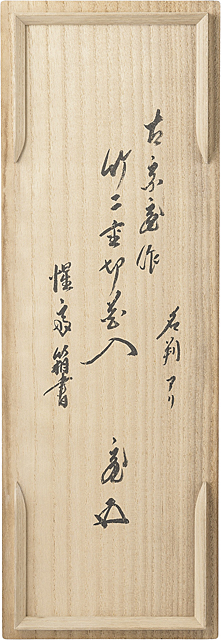 古宗作
名判アリ
竹二重切花入
惺斎箱書